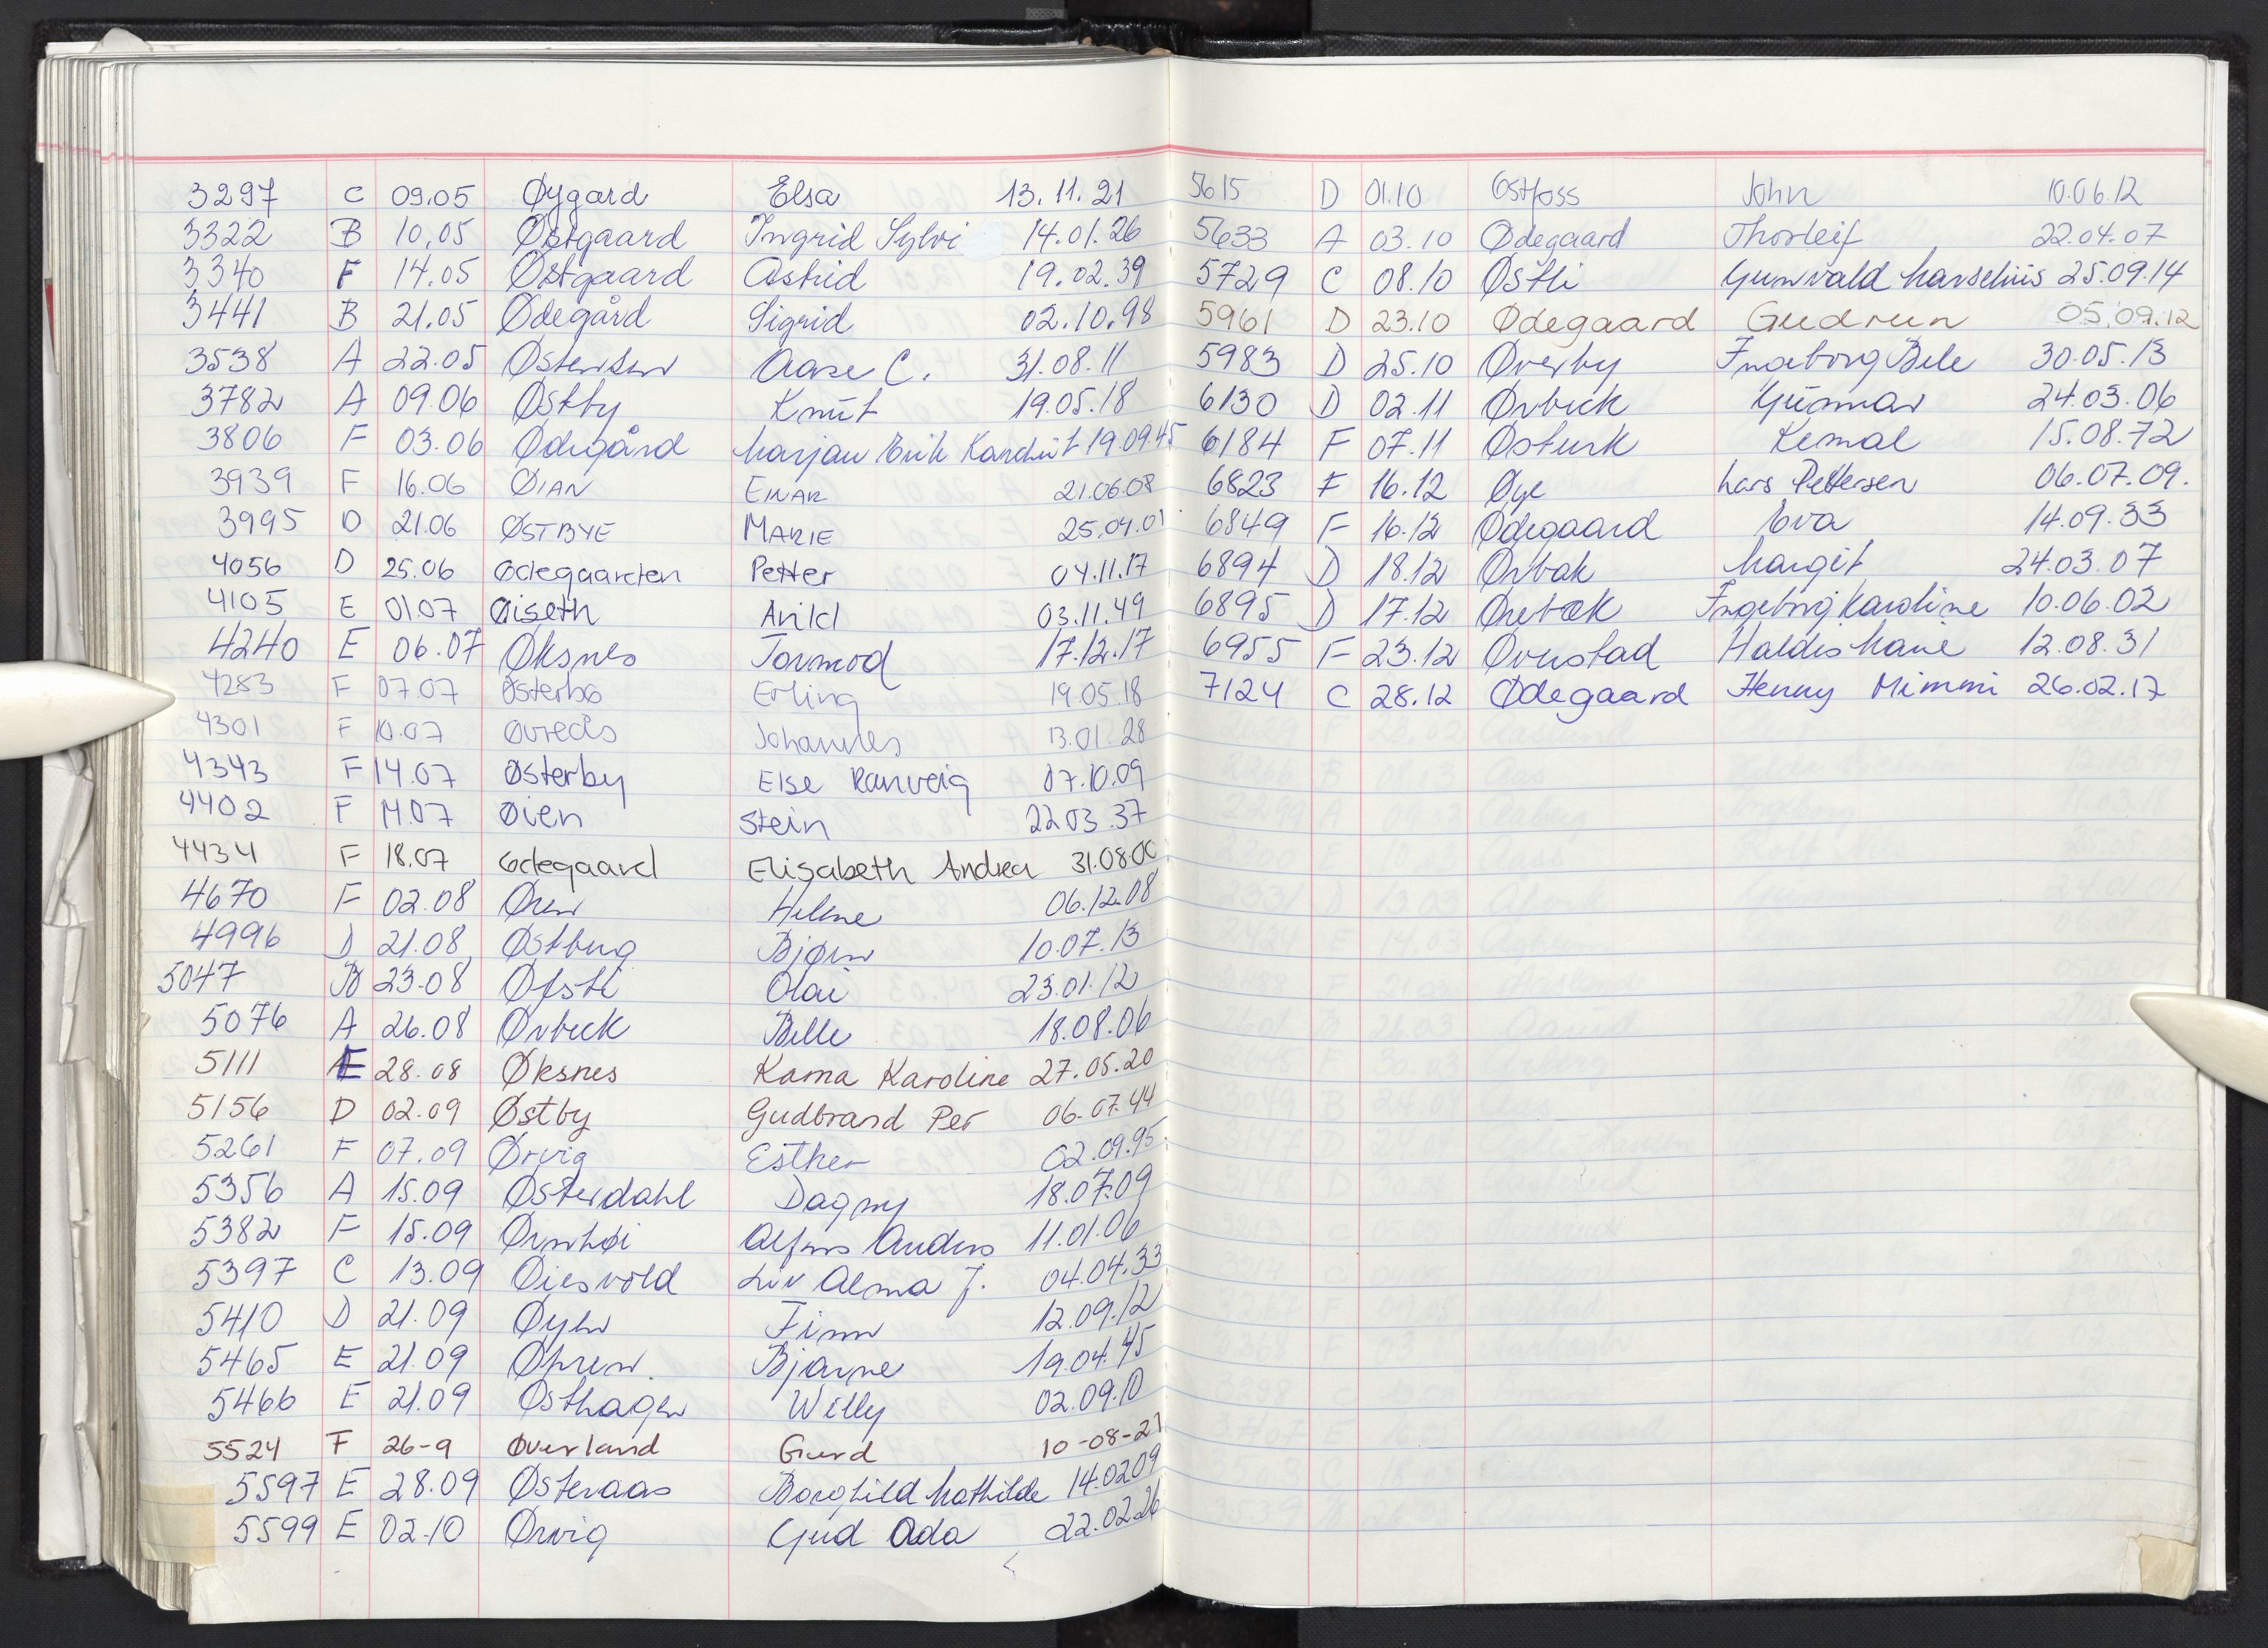 3297 C 09.05 Øygard Elsa 13.11.21
3322 B 10.05 Østgaard Ingrid Sylvi 14.01.26
3340 F 14.05 Østgaard Astrid 19.02.39
3441 B 21.05 Ødegård Sigrid 02.10.98
3538 A 22.05 Østensen Aase C. 31.08.11
3782 A 09.06 Østby Knut 19.05.18
3806 F 03.06 Ødegård Marjan Erik 19.09.45
3939 F 16.06 ØIAN EINAR 21.06.08
3995 D 21.06 ØSTBYE MARIE 25.04.01
4056 D 25.06 Ødegaarden Petter 04.11.17
4105 E 01.07 Øiseth Arild 03.11.49
4240 E 06.07 Øksnes Tormod 17.12.17
4283 F 07.07 Østerbø Erling 19.05.18
4301 F 10.07 Øvreås Johannes 13.01.28
4343 F 14.07 Østerby Else Ranveig 07.10.09
4402 F 14.07 Øien Stein 22.03.37
4434 F 18.07 Ødegaard Elisabeth Andrea 31.08.00
4670 F 02.08 Øren Helene 06.12.08
4996 D 21.08 Østberg Bjørn 10.07.13
5047 B 23.08 Øfsti Olai 23.01.12
5076 A 26.08 Ørbeck Belle 18.08.06
5111 E 28.08 Øksnes Kama Karoline 27.05.20
5156 D 02.09 Østby Gudbrand Per 06.07.44
5261 F 07.09 Ørvig Esther 02.09.95
5356 A 15.09 Østerdahl Dagny 18.07.09
5382 F 15.09 Ørnhøi Alfons Anders 11.01.06
5397 C 13.09 Øiesvold Liv Alma J. 04.04.33
5410 D 21.09 Øyen Finn 12.09.12
5465 E 21.09 Øhren Bjarne 19.04.45
5466 E 21.09 Østhagen Willy 02.09.10
5524 F 26-9 Øverland Gurd 10-08-27
5597 E 28.09 Østeraas Borghild Mathilde 14.02.09
5599 E 02.10 Ørvig Gud Ada 22.02.26
5615 D 01.10 Østfoss John 10.06.12
5633 A 03.10 Ødegaard Thorleif 22.04.07
5729 C 08.10 Østli Gunvald Marselius 25.09.14
5961 D 23.10 Ødegaard Gudrun 05.09.12
5983 D 25.10 Øverby Ingeborg Bele 30.05.13
6130 D 02.11 Ørbeck Gunnar 24.03.06
6184 F 07.11 Østurk Kemal 15.08.72
6823 F 16.12 Øye Lars Pettersen 06.07.09.
6849 F 16.12 Ødegaard Eva 14.09.33
6894 D 18.12 Ørbak Margit 24.03.07
6895 D 17.12 Ørebæk Ingeborg Karoline 10.06.02
6955 F 23.12 Ørnstad Haldis Marie 12.08.31
7124 C 28.12 Ødegaard Henny Mimmi 26.02.17